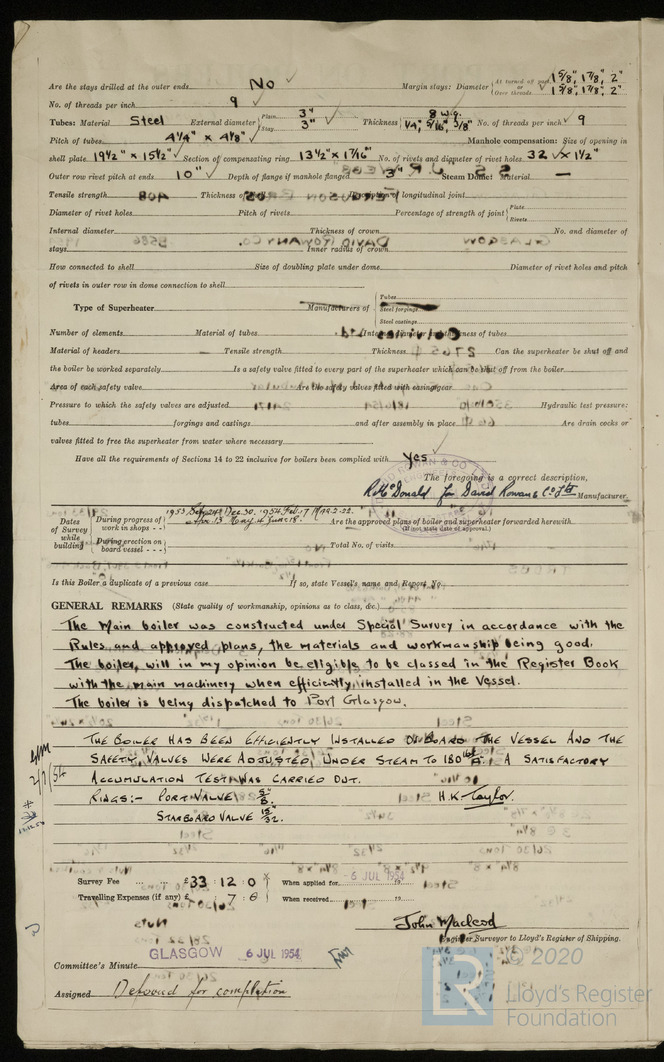 Are the stays drilled at the outer ends No Margin stays: Diameter { At turned off part, 1 5/8", 1 7/8", 2" or Over threads 1 5/8", 1 7/8", 2"
No. of threads per inch 9
Tubes: Material Steel External diameter { Plain 3" Stay 3" Thickness { 8 w.g. 1/4", 5/16", 3/8" No. of threads per inch 9
Pitch of tubes 4 1/4" x 4 1/8" Manhole compensation: Size of opening in
shell plate 19 1/2" x 15 1/2" Section of compensating ring 13 1/2" x 1 7/16" No. of rivets and diameter of rivet holes 32 x 1 1/2"
Outer row rivet pitch at ends 10" Depth of flange if manhole flanged 3" Steam Dome: Material —
Tensile strength Thickness of Description of longitudinal joint
Diameter of rivet holes Pitch of rivets Percentage of strength of joint { Plate Rivets
Internal diameter Thickness of crown No. and diameter of
stays Inner radius of crown
How connected to shell Size of doubling plate under dome Diameter of rivet holes and pitch
of rivets in outer row in dome connection to shell
Type of Superheater Manufacturers of { Tubes Steel forgings Steel castings
Number of elements Material of tubes Internal diameter and thickness of tubes
Material of headers Tensile strength Thickness Can the superheater be shut off and
the boiler be worked separately Is a safety valve fitted to every part of the superheater which can be shut off from the boiler
Area of each safety valve Are the safety valves fitted with easing gear
Pressure to which the safety valves are adjusted Hydraulic test pressure:
tubes forgings and castings and after assembly in place Are drain cocks or
valves fitted to free the superheater from water where necessary
Have all the requirements of Sections 14 to 22 inclusive for boilers been complied with Yes
The foregoing is a correct description,
R McDonald for David Rowan & Co Ltd Manufacturer.
Dates of Survey while building { During progress of work in shops - - 1953 Dec. 30. 1954 Feb. 17 Mar. 2. 22. Apr. 13 May 4 June 18.
Are the approved plans of boiler and superheater forwarded herewith
(If not state date of approval.)
During erection on board vessel - - - Total No. of visits
Is this Boiler a duplicate of a previous case If so, state Vessel's name and Report No.
GENERAL REMARKS (State quality of workmanship, opinions as to class, &c.)
The Main boiler was constructed under Special Survey in accordance with the
Rules and approved plans, the materials and workmanship being good.
The boiler, will in my opinion be eligible to be classed in the Register Book
with the main machinery when efficiently installed in the Vessel.
The boiler is being dispatched to Port Glasgow.
The Boiler has been efficiently installed on board the vessel and the
safety valves were adjusted under steam to 180 lb/□". A satisfactory
accumulation test was carried out.
Rings:- Port Valve H.K. Taylor.
Starboard Valve 15/32."
Survey Fee ... ... £33 : 12 : 0 When applied for 6 JUL 1954 19
Travelling Expenses (if any) £ : 7 : 6 When received 19
John Macleod
Engineer Surveyor to Lloyd's Register of Shipping.
GLASGOW 6 JUL 1954
Committee's Minute
Assigned Deferred for completion
© 2020
LR
Lloyd's Register
Foundation